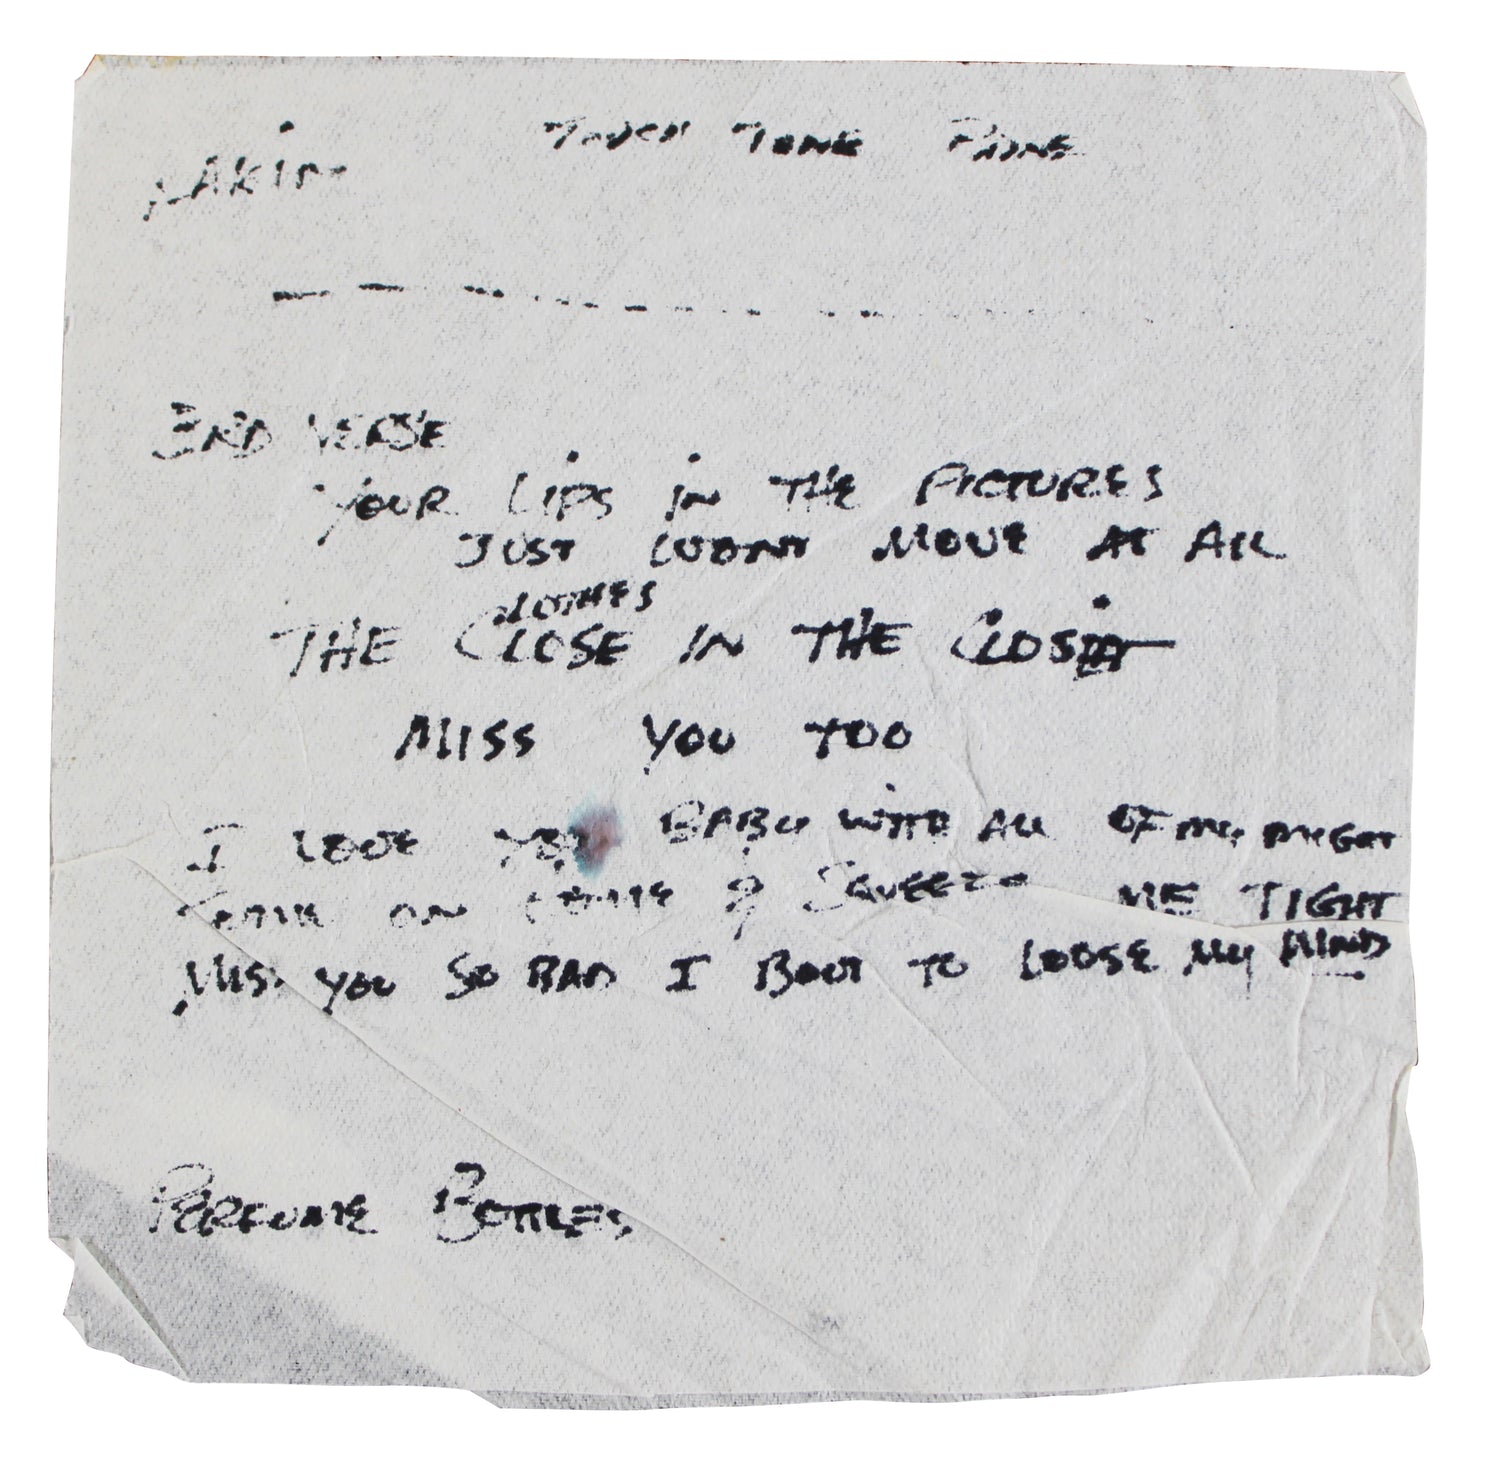 TOUCH TONE PHONE
RAKIM
3RD VERSE
YOUR LIPS IN THE PICTURES
JUST WONT MOVE AT ALL
CLOTHES
THE CLOSE IN THE CLOSIT
MISS YOU TOO
I LOVE YOU BABY WITH ALL OF MY MIGHT
ON & SQUEEZE ME TIGHT
MISS YOU SO BAD I BOUT TO LOOSE MY MIND
PERFUME BOTTLES